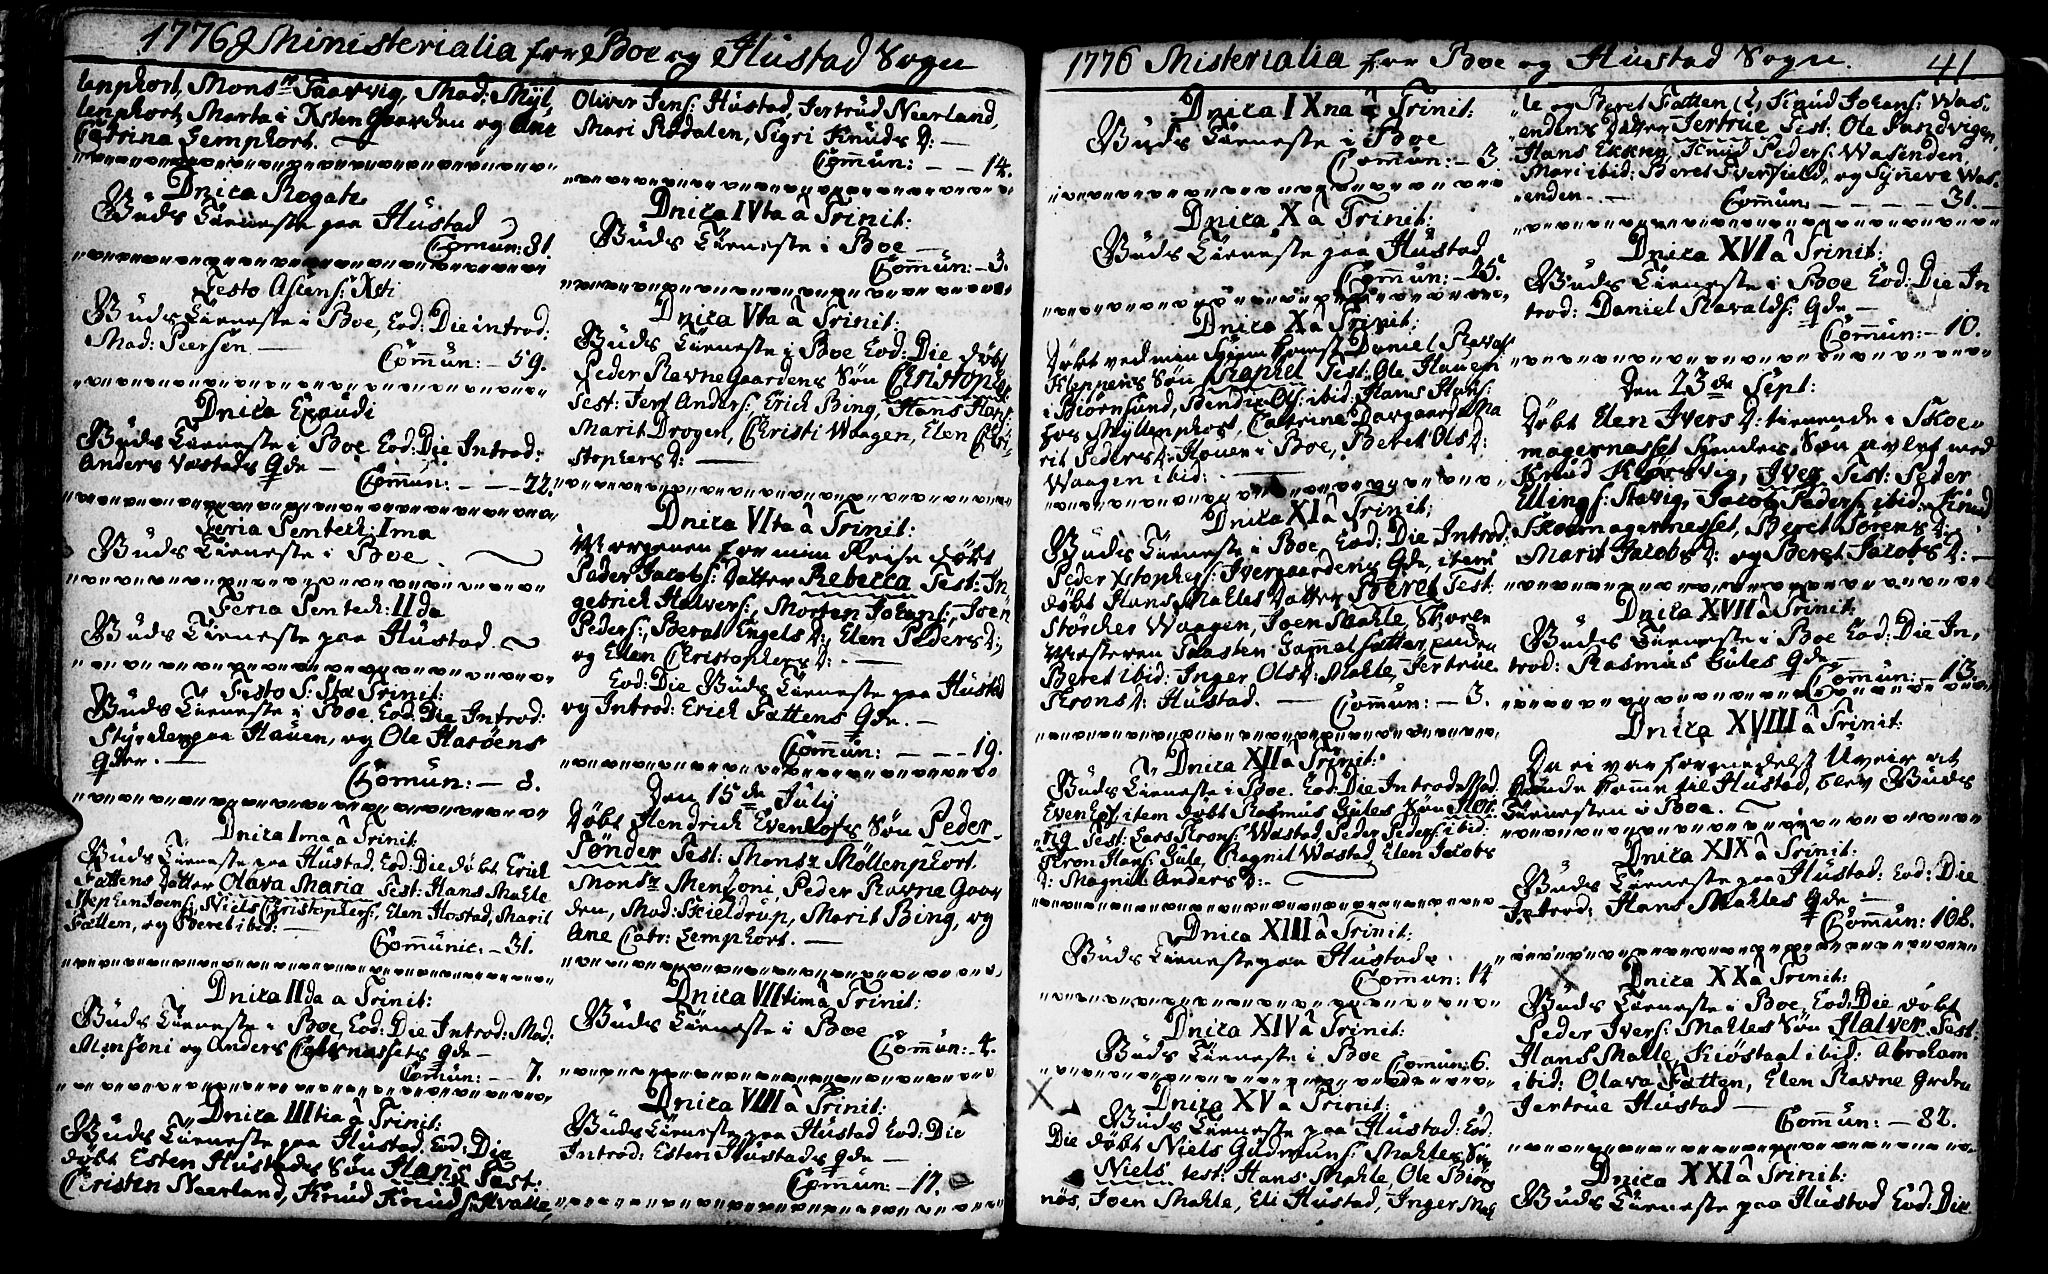 1776 Ministerialia for Boe og Hustad Sogn
lenphort, Mons.r Taarvig, Mad: Myl,
lenphort, Marta i Xsten Gaarden og Ane
Catrina Lemphort.
Dnica Rogate
Guds Tieneste paa Hustad
Com̄un: 81.
Festo Ascens: Xsti
Guds Tieneste i Boe, Eod: Die introd:
Mad: Peersen
Com̄un: — 59.
Dnica Exaudi
Guds Tieneste i Boe Eod: Die Introd:
Anders Vastads Qde —
Com̄un: — — 22.
Feria Pentech: Ima
Guds Tieneste i Boe.
Feria Pentech: IIda
Guds Tieneste paa Hustad.
Festo S: Stæ Trinit:
Guds Tieneste i Boe. Eod: Die Introd:
Styrcher paa Hauen, og Ole Harøens
Qder. —
Com̄un: — 8.
Dnica Ima â Trinit:
Guds Tieneste paa Hustad. Eod: Die døbt Erich
Fattens Datter Olava Maria Test: Hans Mahle
Stephen Joens:, Niels Christophers:, Elen Hostad, Marit
Fatten, og Beret ibid: —
Com̄unic. — 31.
Dnica IIda a Trinit:
Guds Tieneste i Boe, Eod: Die Introd: Mad:
Monsoni og Anders Catrnessets Qde —
Com̄un: — 7.
Dnica IIItia â Trinit:
Guds Tieneste paa Hustad. Eod: Die
døbt Esten Hustads Søn Hans Test:
Christen Neerland, Knud Knuds: Hvalle,
Oliver Jens: Hustad, Jertrud Neerland,
Mari Rødalen, Sigri Knuds D: —
Com̄un: — — 14.
Dnica IVta â Trinit:
Guds Tieneste i Boe —
Com̄un: — 3.
Dnica Vta â Trinit:
Guds Tieneste i Boe Eod: Die døbt
Peder Ravne Gaardens Søn Christopher
Test: Jens Anders:, Erich Bing, Hans Hans:
Marit Drogen, Christi Waagen, Elen Chri-
stophers D: —
Dnica VIta â Trinit:
Morgenen for min Reise døbt
Peder Jacobs: Datter Rebecca Test: In-
gebrich Halvers:, Morten Johans:, Joen
Peders:, Beret Engels D:, Elen Peders D:,
og Elen Christophers D: —
Eod: Die Guds Tieneste paa Hustad
og Introd: Erich Fattens Qde. —
Com̄un: — — — 19.
Den 15de July
Døbt Hendrich Evenhofs Søn Peder
Sønder Test: Mons.r Møllenphort.
Mons.r Monsoni, Peder Ravne Gaar
den, Mad: Skieldrup, Marit Bing, og
Ane Catr: Lemphort. —
Dnica VIItima Trinit:
Guds Tieneste i Boe
Com̄un: — 4.
Dnica VIII â Trinit:
Guds Tieneste paa Hustad Eod: Die
Introd: Esten Hustads Qde —
Com̄un: — 17.
1776 Misterialia for Boe og Hustad Sogn.
41
Dnica IXna â Trinit:
Guds Tieneste i Boe
Com̄un: — 3.
Dnica X â Trinit:
Guds Tieneste paa Hustad
Com̄un: — 25.
Dnica X â Trinit:
Døbt ved min Hiem Komst Daniel Ravals
Kleppens Søn Raphel Test: Ole Hauen
i Biørnsund, Bendix Ols: ibid: Hans Hans:
hos Myllenphort, Catrine Dargaard Ma
rit Peders D: Houen i Boe, Beret Ols D:
Waagen ibid: —
Dnica XI â Trinit:
Guds Tieneste i Boe. Eod: Die Introd:
Peder Xstophers: Ivergaardens Qde, item
døbt Hans Mahles Datter Beret Test:
Størcher Waagen, Joen Mahle,
Beret ibid: Inger Ols D: Mahle, Jertrue
Trons D: Hustad. —
Com̄un: — 3.
Dnica XII â Trinit:
Guds Tieneste i Boe. Eod: Die Introd: Mad.
Evenhof, item døbt Rasmus Gules Søn
Test: Lars Trons: Wastad, Peder Peders: ibid:
Tron Hans: Gule, Ragnil Wastad, Elen Jacobs
D: Magnill Anders D: —
Dnica XIII â Trinit:
Guds Tieneste paa Hustad.
Com̄un: 14
Dnica XIV â Trinit:
Guds Tieneste i Boe
Com̄un: 6.
Dnica XV â Trinit:
Guds Tieneste paa Hustad: Eod:
Die døbt Niels Gudmuns: Mahles Søn
Niels test: Hans Mahle, Ole Biørg
nøs, Joen Mahle, Eli Hustad, Inger Mah
le og Beret Fatten Knud Johans: Was-
endens Datter Jertrue Test: Ole Sandvigen,
Hans Ekkren, Knud Peders: Wasenden,
Mari ibid: Beret Sverfield, og Synneve Was-
enden. —
Com̄un — — — — 31. —
Dnica XVI â Trinit:
Guds Tieneste i Boe Eod: Die In
trod: Daniel Ravalds: Qde —
Com̄un: — 10.
Den 23de Sept:
Døbt Elen Ivers D: tienende i Skoe-
magernesset hendes Søn avlet med
Knud Iver Test: Peder
Ellings: Stavig, Jacob Peders: ibid: Knud
Skoemagernesset, Beret Sørens D:
Marit Jacobs D: og Beret Jacobs D: —
Dnica XVII â Trinit:
Guds Tieneste i Boe Eod: Die In,
trod: Rasmus Gules Qde —
Com̄un: — 13.
Dnica XVIII â Trinit:
Da ei var formedelst Uveir at
kunde komme til Hustad, blev Guds
Tienesten i Boe.
Dnica XIX â Trinit:
Guds Tieneste paa Hustad: Eod: Die
Introd: Hans Mahles Qde —
Com̄un: 108.
Dnica XX â Trinit:
Guds Tieneste i Boe, Eod: Die døbt
Peder Ivers: Mahles Søn Halver Test:
Hans Mahle, Kiøstaal ibid: Abraham
ibid: Olava Fatten, Elen Ravne Grden
Jertrue Hustad —
Com̄un: — 82.
Dnica XXI â Trinit:
Guds Tieneste paa Hustad Eod: Die